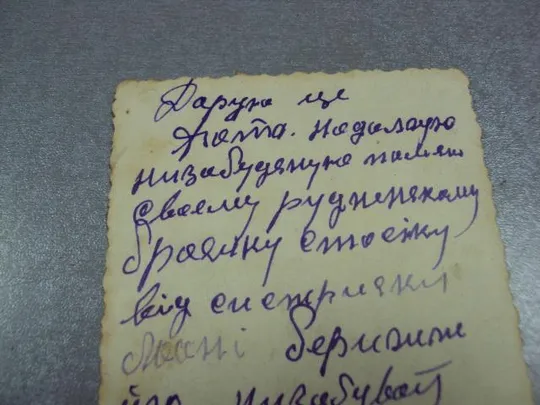 Дарую це
Фота. Надолгую
низабудяную памят
своему руднинскому
братику
від систрички
Мані бережи
його низабувай